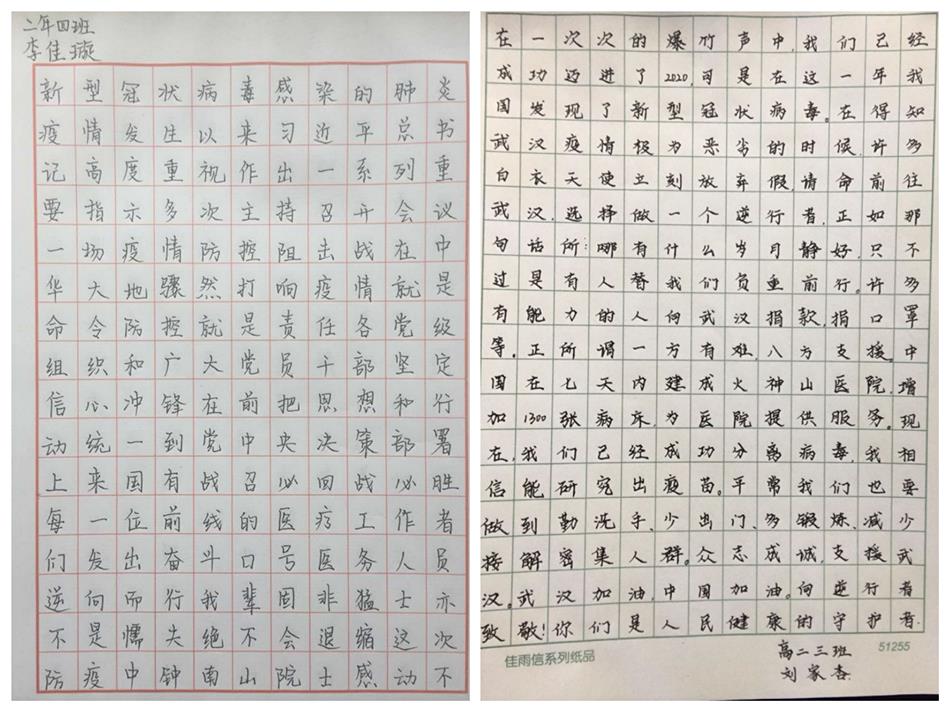 二年四班
李佳璇
新型冠状病毒感染的肺炎
疫情发生以来习近平总书
记高度重视作出一系列重
要指示多次主持召开会议
一场疫情防控阻击战在中
华大地骤然打响疫情就是
命令防控就是责任各党级
组织和广大党员干部坚定
信心冲锋在前把思想和行
动统一到党中央决策部署
上来国有战召必回战必胜
每一位前线的医疗工作者
们发出奋斗口号医务人员
逆向而行我辈固非猛士亦
不是懦夫绝不会退缩这次
防疫中钟南山院士感动不
在一次次的爆竹声中,我们已经
成功迈进了2020,可是在这一年我
国发现了新型冠状病毒。在得知
武汉疫情极为恶劣的时候,许多
白衣天使立刻放弃假,请命前往
武汉,选择做一个逆行者,正如那
句话所:哪有什么岁月静好,只不
过是有人替我们负重前行。许多
有能力的人向武汉捐款,捐口罩
等。正所谓一方有难,八方支援。中
国在七天内建成火神山医院,增
加1300张病床,为医院提供服务。现
在,我们已经成功分离病毒,我相
信能研究出疫苗。平常我们也要
做到勤洗手、少出门、多锻炼、减少
接解密集人群。众志成城,支援武
汉。武汉加油,中国加油。向逆行者
致敬!你们是人民健康的守护者
佳雨信系列纸品
51255
高二三班
刘家杏